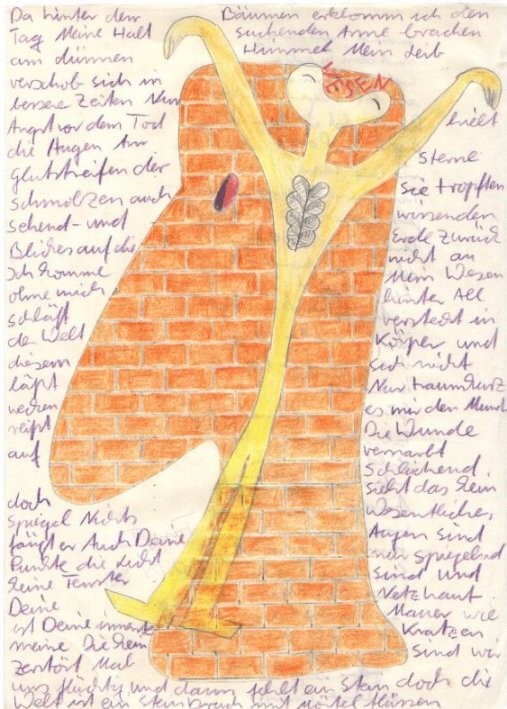 Da hinter den Bäumen erklomm ich den
Tag Meine Halt suchenden Arme brachen
am dünnen Himmel Mein Leib
verschob sich in
WESEN
bessere Zeiten Nun
Angst vor dem Tod hielt
die Augen Am Sterne
Glutstreifen der sie tropften
schmolzen auch wissenden
sehend- und Erde zurück
Blickes auf die nicht an
Ich komme Mein Wesen
ohne mich hinter All
schläft versteckt in
der Welt Körper und
diesem sich nicht
läßt Nur traumkurz
wecken es mir den Mund
reißt Die Wunde
auf vernarbt
doch sieht das kein
Spiegel Nichts Wesentliches
fängt er Auch Deine Augen sind
Punkte die Licht nur spiegelnd
keine Fenster sind und
Deine Netzhaut
ist Deine innerste Mauer wie
meine Die kein Kratzen
zerstört Mal sind wir
uns flüchtig und dann fehlt ein Stein doch die
Welt ist ein Steinbruch mit Mörtelflüssen